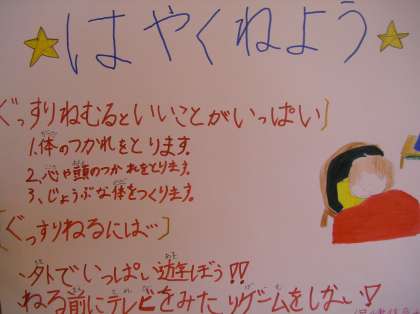 はやくねよう
ぐっすりねむるといいことがいっぱい]
1.体のつかれをとります。
2.心や頭のつかれをとります。
3.じょうぶな体をつくります。
[ぐっすりねるには…]
・外でいっぱい遊ぼう!!
ねる前にテレビをみたりゲームをしない!